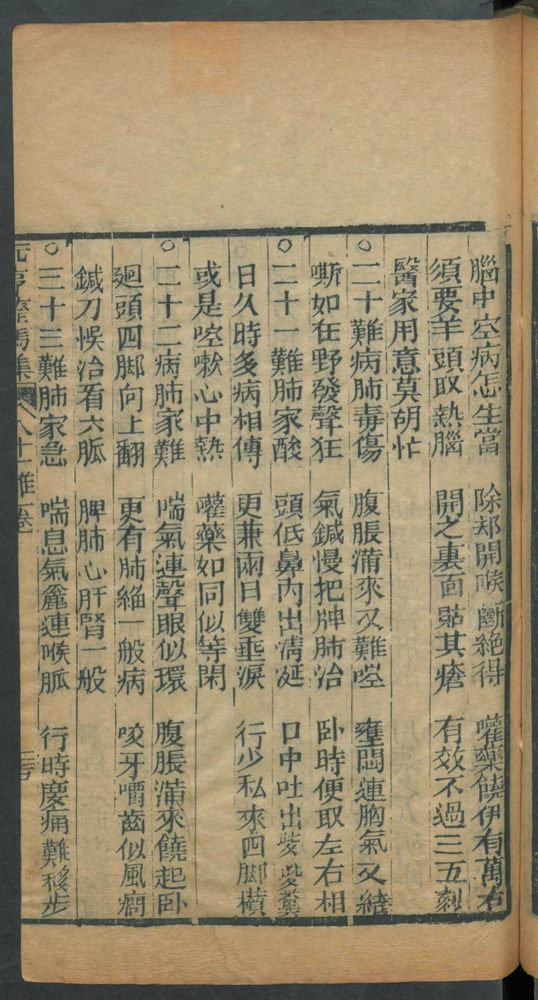 腦中空病怎生當　除却開喉斷絕得　嚾藥饒伊有萬右
須要羊頭取熱腦　開之裏面貼其瘡　有效不過三五刻
醫家用意莫胡忙
○二十難病肺毒傷　腹脹滿來又難啌　壅悶連胸氣又緒
嘶如在野發聲狂　氣鍼慢把脾肺治　卧時便取左右相
○二十一難肺家酸　頭低鼻内出淸涎　口中吐出
日久時多病相傳　更兼兩日雙垂淚　行少私來四脚橫
或是啌嗽心中熱　嚾藥如同似等閑
○二十二病肺家難　喘氣連聲眼似環　腹脹滿來饒起卧
廻頭四脚向上翻　更有肺絕一般病　咬牙嚼齒似風癎
鍼刀悞治看六脈　脾肺心肝腎一般
○三十三難肺家急　喘息氣麄連喉脈　行時慶痛難移步
元亨療馬集　八十一難